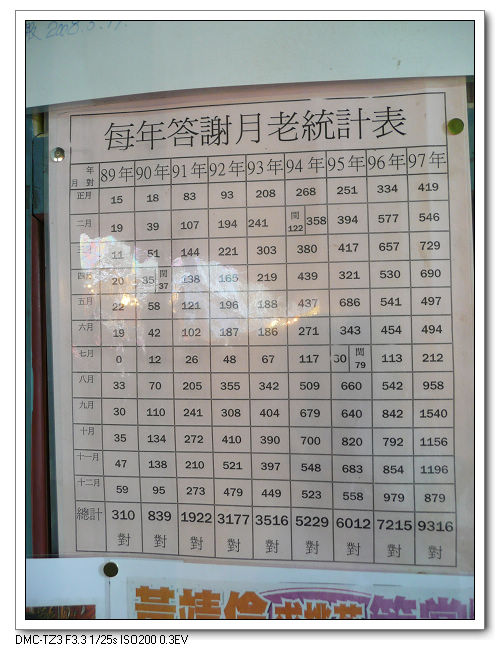 2008.5.17.
每年答謝月老統計表
年 月 對 89年 90年 91年 92年 93年 94年 95年 96年 97年
正月 15 18 83 93 208 268 251 334 419
二月 19 39 107 194 241 閏122 358 394 577 546
月 11 51 144 221 303 380 417 657 729
四月 20 35 閏37 138 165 219 439 321 530 690
五月 22 58 121 196 188 437 686 541 497
六月 19 42 102 187 186 271 343 454 494
七月 0 12 26 48 67 117 60 閏79 113 212
八月 33 70 205 355 342 509 660 542 958
九月 30 110 241 308 404 679 640 842 1540
十月 35 134 272 410 390 700 820 792 1156
十一月 47 138 210 521 397 548 683 854 1196
十二月 59 95 273 479 449 523 558 979 879
總計 310 839 1922 3177 3516 5229 6012 7215 9316
對 對 對 對 對 對 對 對 對
DMC-TZ3 F3.3 1/25s ISO200 0.3EV